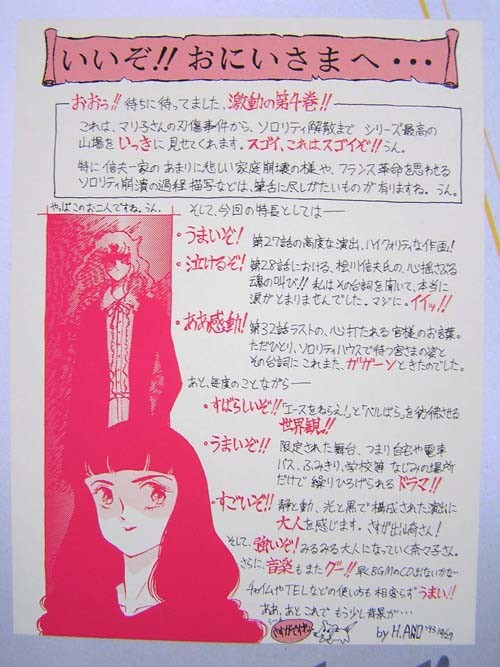 いいぞ!! おにいさまへ・・・
おおっ!! 待ちに待ってました、激動の第4巻!!
これは、マリ子さんの刃傷事件から、ソロリティ解散まで シリーズ最高の
山場を いっきに 見せてくれます。スゴイ、これはスゴイぞ!! うん。
特に信夫一家の あまりに悲しい家庭崩壊の様や、フランス革命を思わせる
ソロリティ崩潰の過程描写などは、筆舌に尽しがたいものが有りますね。うん。
やっぱこのお二人ですね。うん。
そして、今回の特長としては――
・うまいぞ! 第27話の高度な演出、ハイクォリティな作画!
・泣けるぞ! 第28話における、桧川信夫氏の、心揺さぶる
魂の叫び!! 私はその台詞を聞いて、本当に
涙がとまりませんでした。マジに。イイッ!!
・ああ感動! 第32話ラストの、心打たれる 宮様のお言葉。
ただひとり、ソロリティハウスで待つ宮さまの姿と
その台詞にこれまた ガガーンときたのでした。
あと、毎度のことながら――
・すばらしいぞ!! 「エースをねらえ!」と「ベルばら」を彷彿させる
世界観!!
・うまいぞ!! 限定された舞台、つまり自宅や電車
バス、ふみきり、学校等 なじみの場所
だけで 繰りひろげられる ドラマ!!
・すごいぞ!! 静と動、光と黒で構成された演出に
大人を感じます。さすが出﨑さん!
そして、強いぞ! みるみる大人になっていく奈々子さん。
さらに、音楽もまた グー!! 早くBGMのCD出ないかな~
チャイムやTELなどの使い方も 相変らず うまい!!
ああ、あとこれで もう少し背景が・・・
by H.ANO '93.10/29